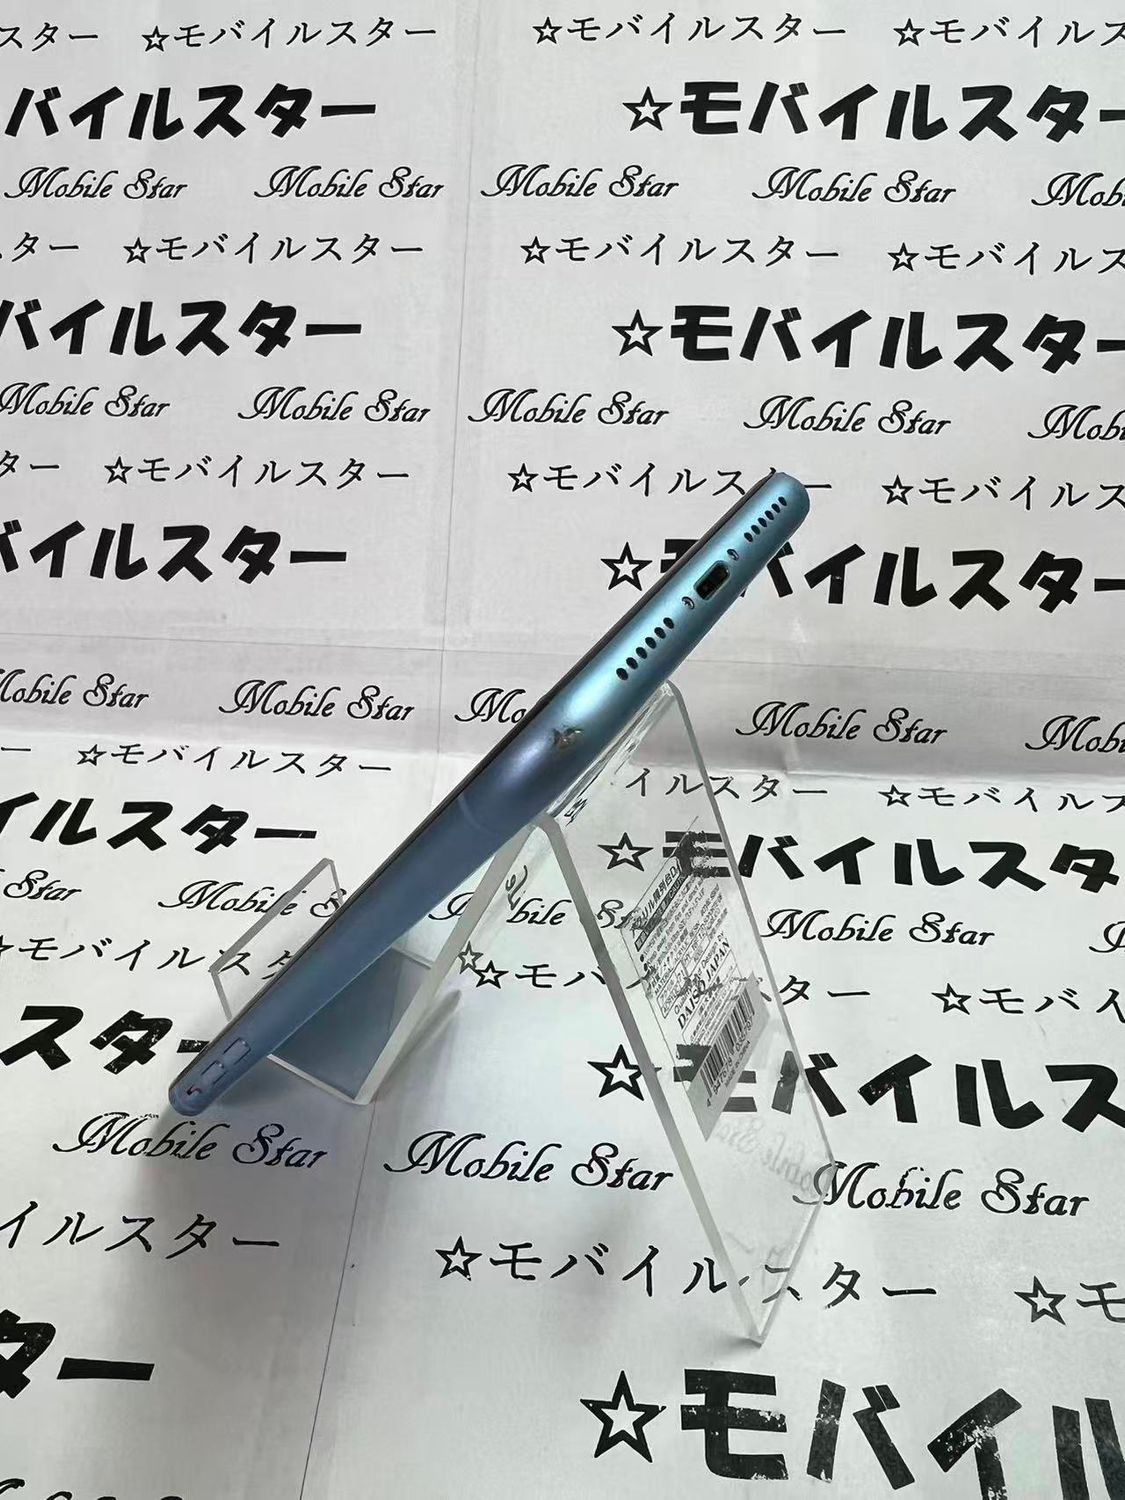 スター ☆モバイルスター ☆モバイルスター ☆モバイルス
バイルスター ☆モバイルスター
Mobile Star Mobile Star Mobile Star Mobile Star Mob
スター ☆モバイルスター ☆モバイルスター ☆モバイルス
バイルスター ☆モバイルスター
Mobile Star Mobile Star Mobile Star Mobile Star Mob
ター ☆モバイルスター ☆モバイルスター ☆モバイルス
バイルスター ☆モバイルスター
Mobile Star Mobile Star Mo Mobile Star Mob
ー ☆モバイルスター イルスター ☆モバイルス
イルスター ☆モバイルスタ
Star Mobile S bile St Mobile Star
☆モバイルスタ ☆モバ スター ☆モバイ
スター ☆モバイルス
DAISO JAPAN
Mobile Star Mobile Star Mobile Star
イルスター ☆モバイルスター ☆モ
ター ☆モバイル